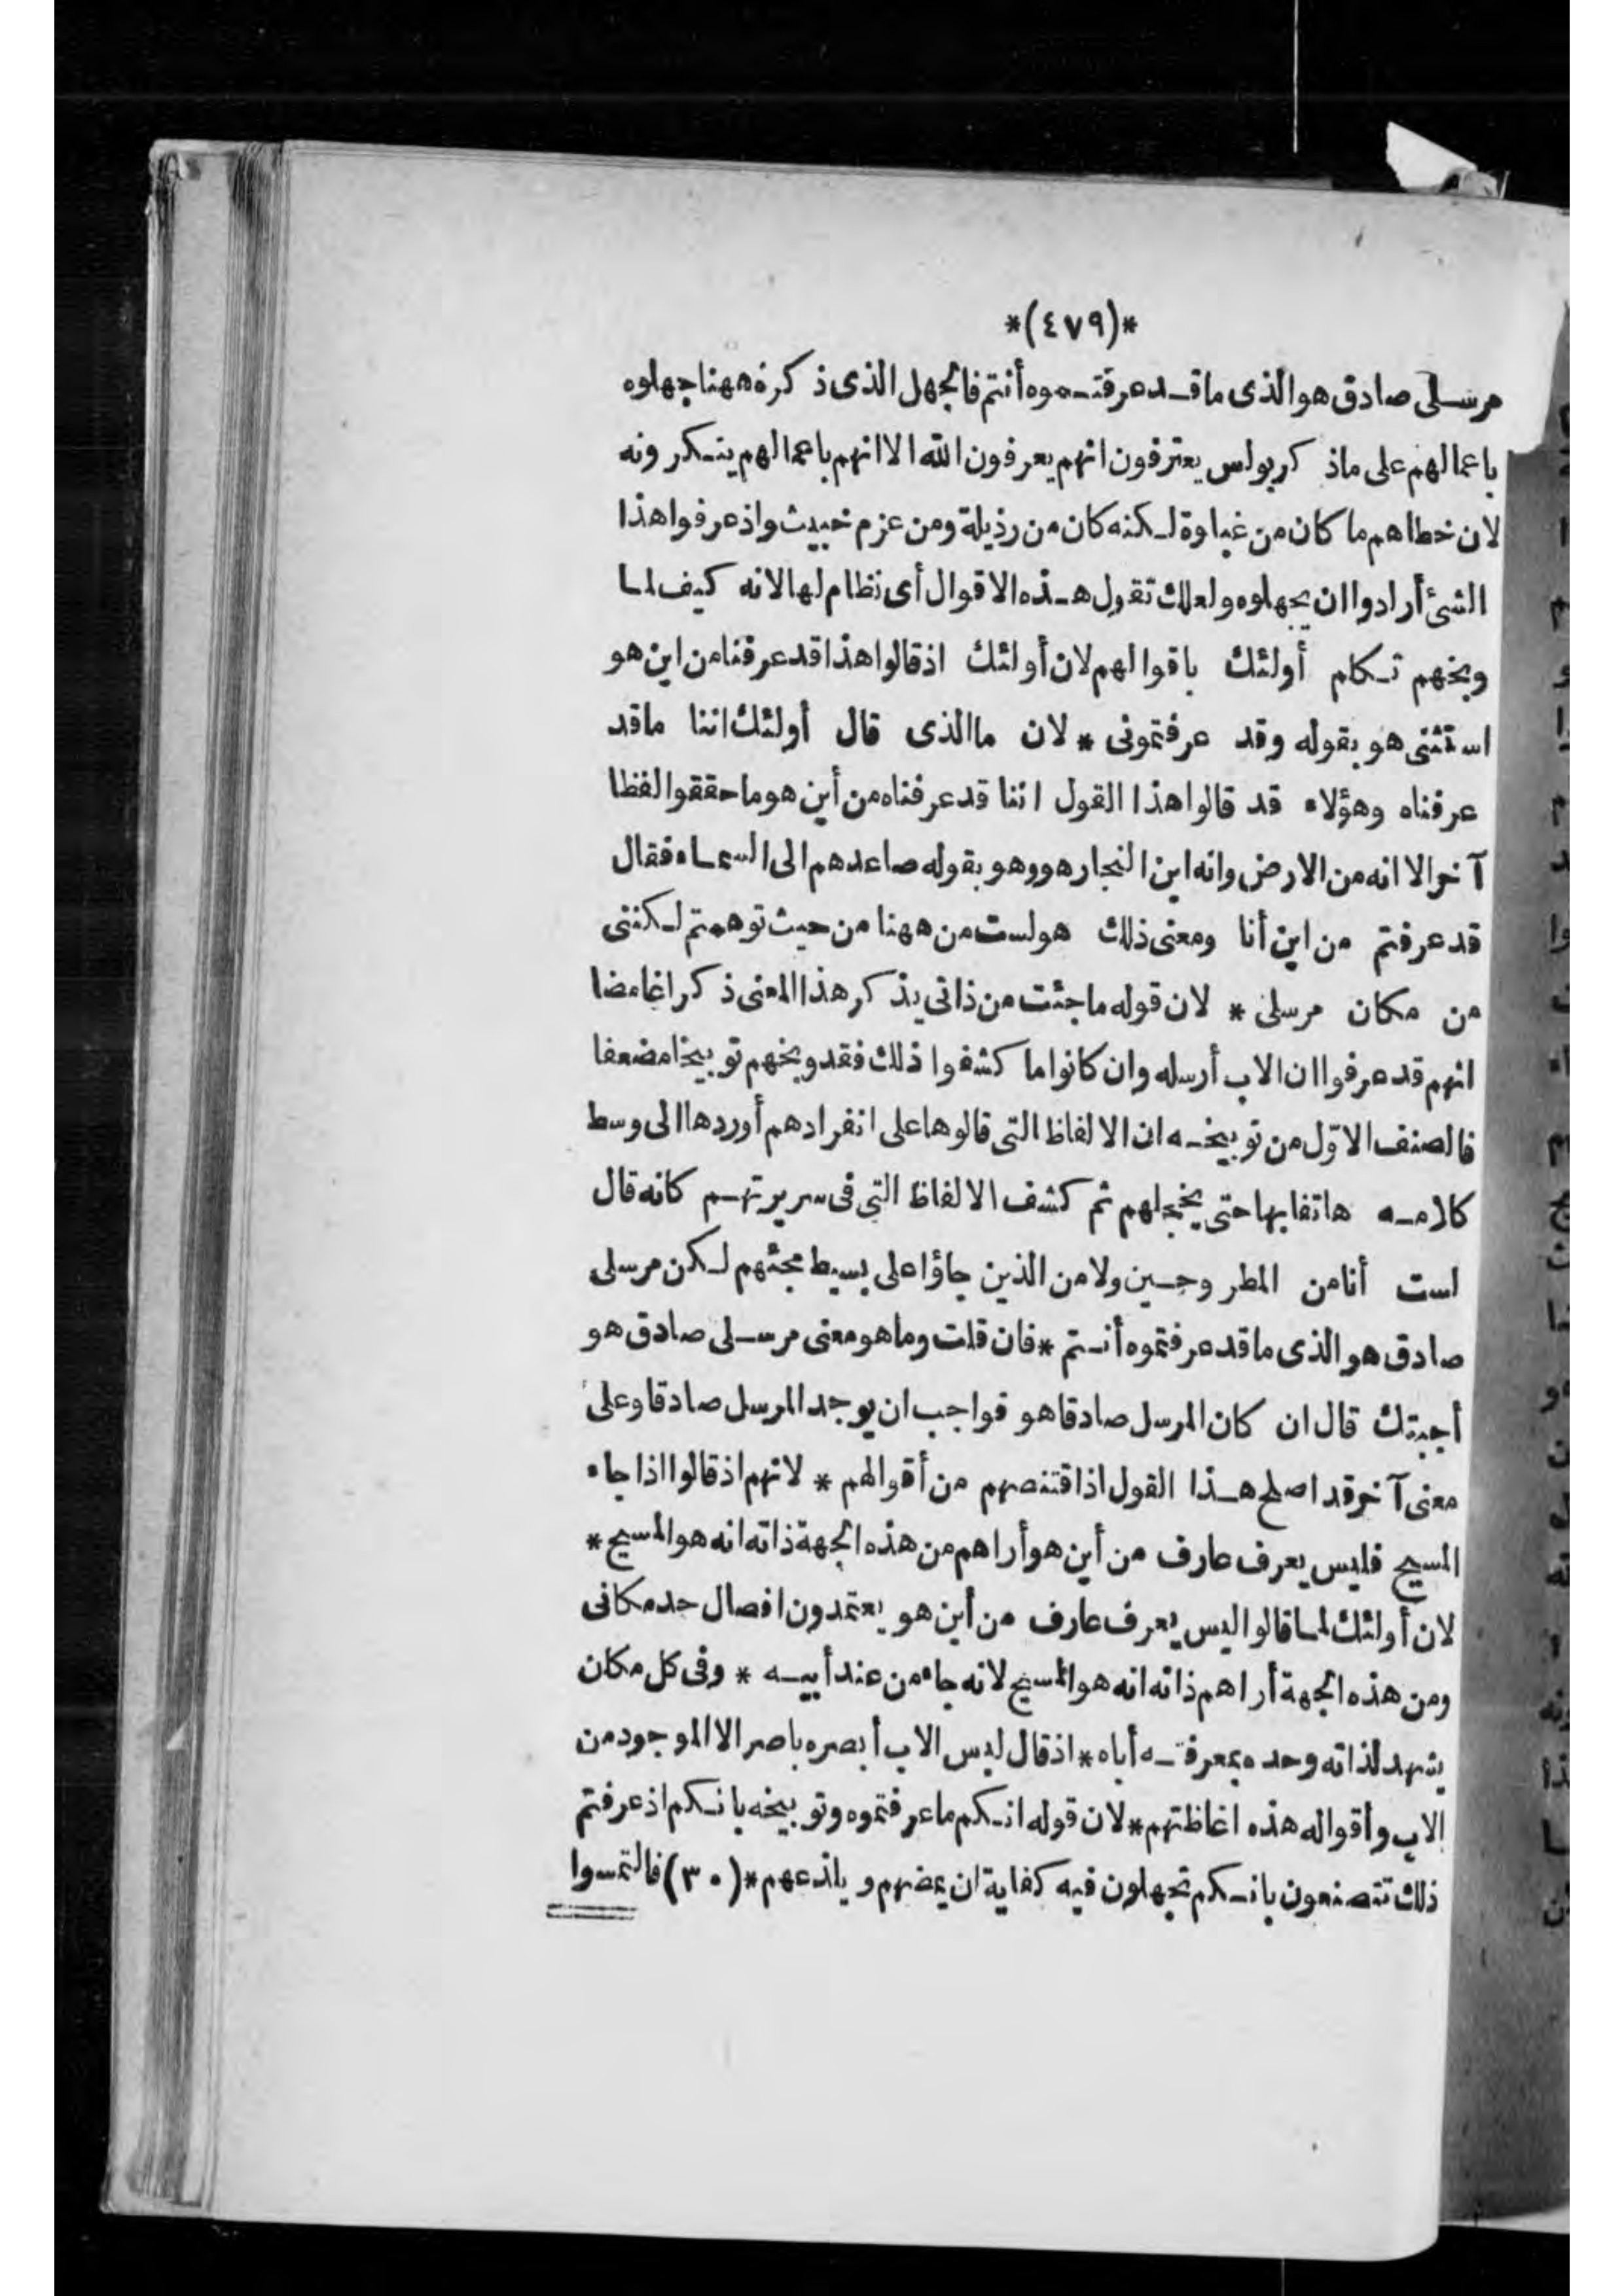 *(٤٧٩)*
مرسلى صادق هو الذى ما قد عرفتموه أنتم فالجهل الذى ذكره ههنا جهلوه
باعمالهم على ما ذكر بولس يعترفون انهم يعرفون الله الا انهم باعمالهم ينكرونه
لان خطاهم ما كان من غباوة لكنه كان من رذيلة ومن عزم خبيث واذ عرفوا هذا
الشئ أرادوا ان يجهلوه ولعلك تقول هذه الاقوال أى نظام لها لانه كيف لما
وبخهم تكلم أولئك باقوالهم لان أولئك اذ قالوا هذا قد عرفنا من اين هو
استثنى هو بقوله وقد عرفتمونى * لان ما الذى قال أولئك اننا ما قد
عرفناه وهؤلاء قد قالوا هذا القول اننا قد عرفناه من أين هو ما حققوا لفظا
آخر الا انه من الارض وانه ابن النجار هو وهو بقوله صاعدهم الى السماء فقال
قد عرفتم من اين أنا ومعنى ذلك هو لست من ههنا من حيث توهمتم لكننى
من مكان مرسلى * لان قوله ما جئت من ذاتى يذكر هذا المعنى ذكرا غامضا
انهم قد عرفوا ان الاب أرسله وان كانوا ما كشفوا ذلك فقد وبخهم توبيخا مضعفا
فالصنف الاوّل من توبيخه ان الالفاظ التى قالوها على انفرادهم أوردها الى وسط
كلامه هاتفا بها حتى يخجلهم ثم كشف الالفاظ التى فى سريرتهم كانه قال
لست أنا من المطروحين ولا من الذين جاؤا على بسيط مجئهم لكن مرسلى
صادق هو الذى ما قد عرفتموه أنتم * فان قلت وما هو معنى مرسلى صادق هو
أجبتك قال ان كان المرسل صادقا هو فواجب ان يوجد المرسل صادقا وعلى
معنى آخر قد اصلح هذا القول اذ اقتنصهم من أقوالهم * لانهم اذ قالوا اذا جاء
المسيح فليس يعرف عارف من أين هو أراهم من هذه الجهة ذاته انه هو المسيح *
لان أولئك لما قالوا ليس يعرف عارف من أين هو يعتمدون افصال حد مكانى
ومن هذه الجهة أراهم ذاته انه هو المسيح لانه جاء من عند أبيه * وفى كل مكان
يشهد لذاته وحده بمعرفته أباه * اذ قال ليس الاب أبصره باصر الا الموجود من
الاب وأقواله هذه اغاظتهم * لان قوله انكم ما عرفتموه وتوبيخه بانكم اذ عرفتم
ذلك تتصنعون بانكم تجهلون فيه كفاية ان يمضهم ويلذعهم * (٣٠) فالتمسوا